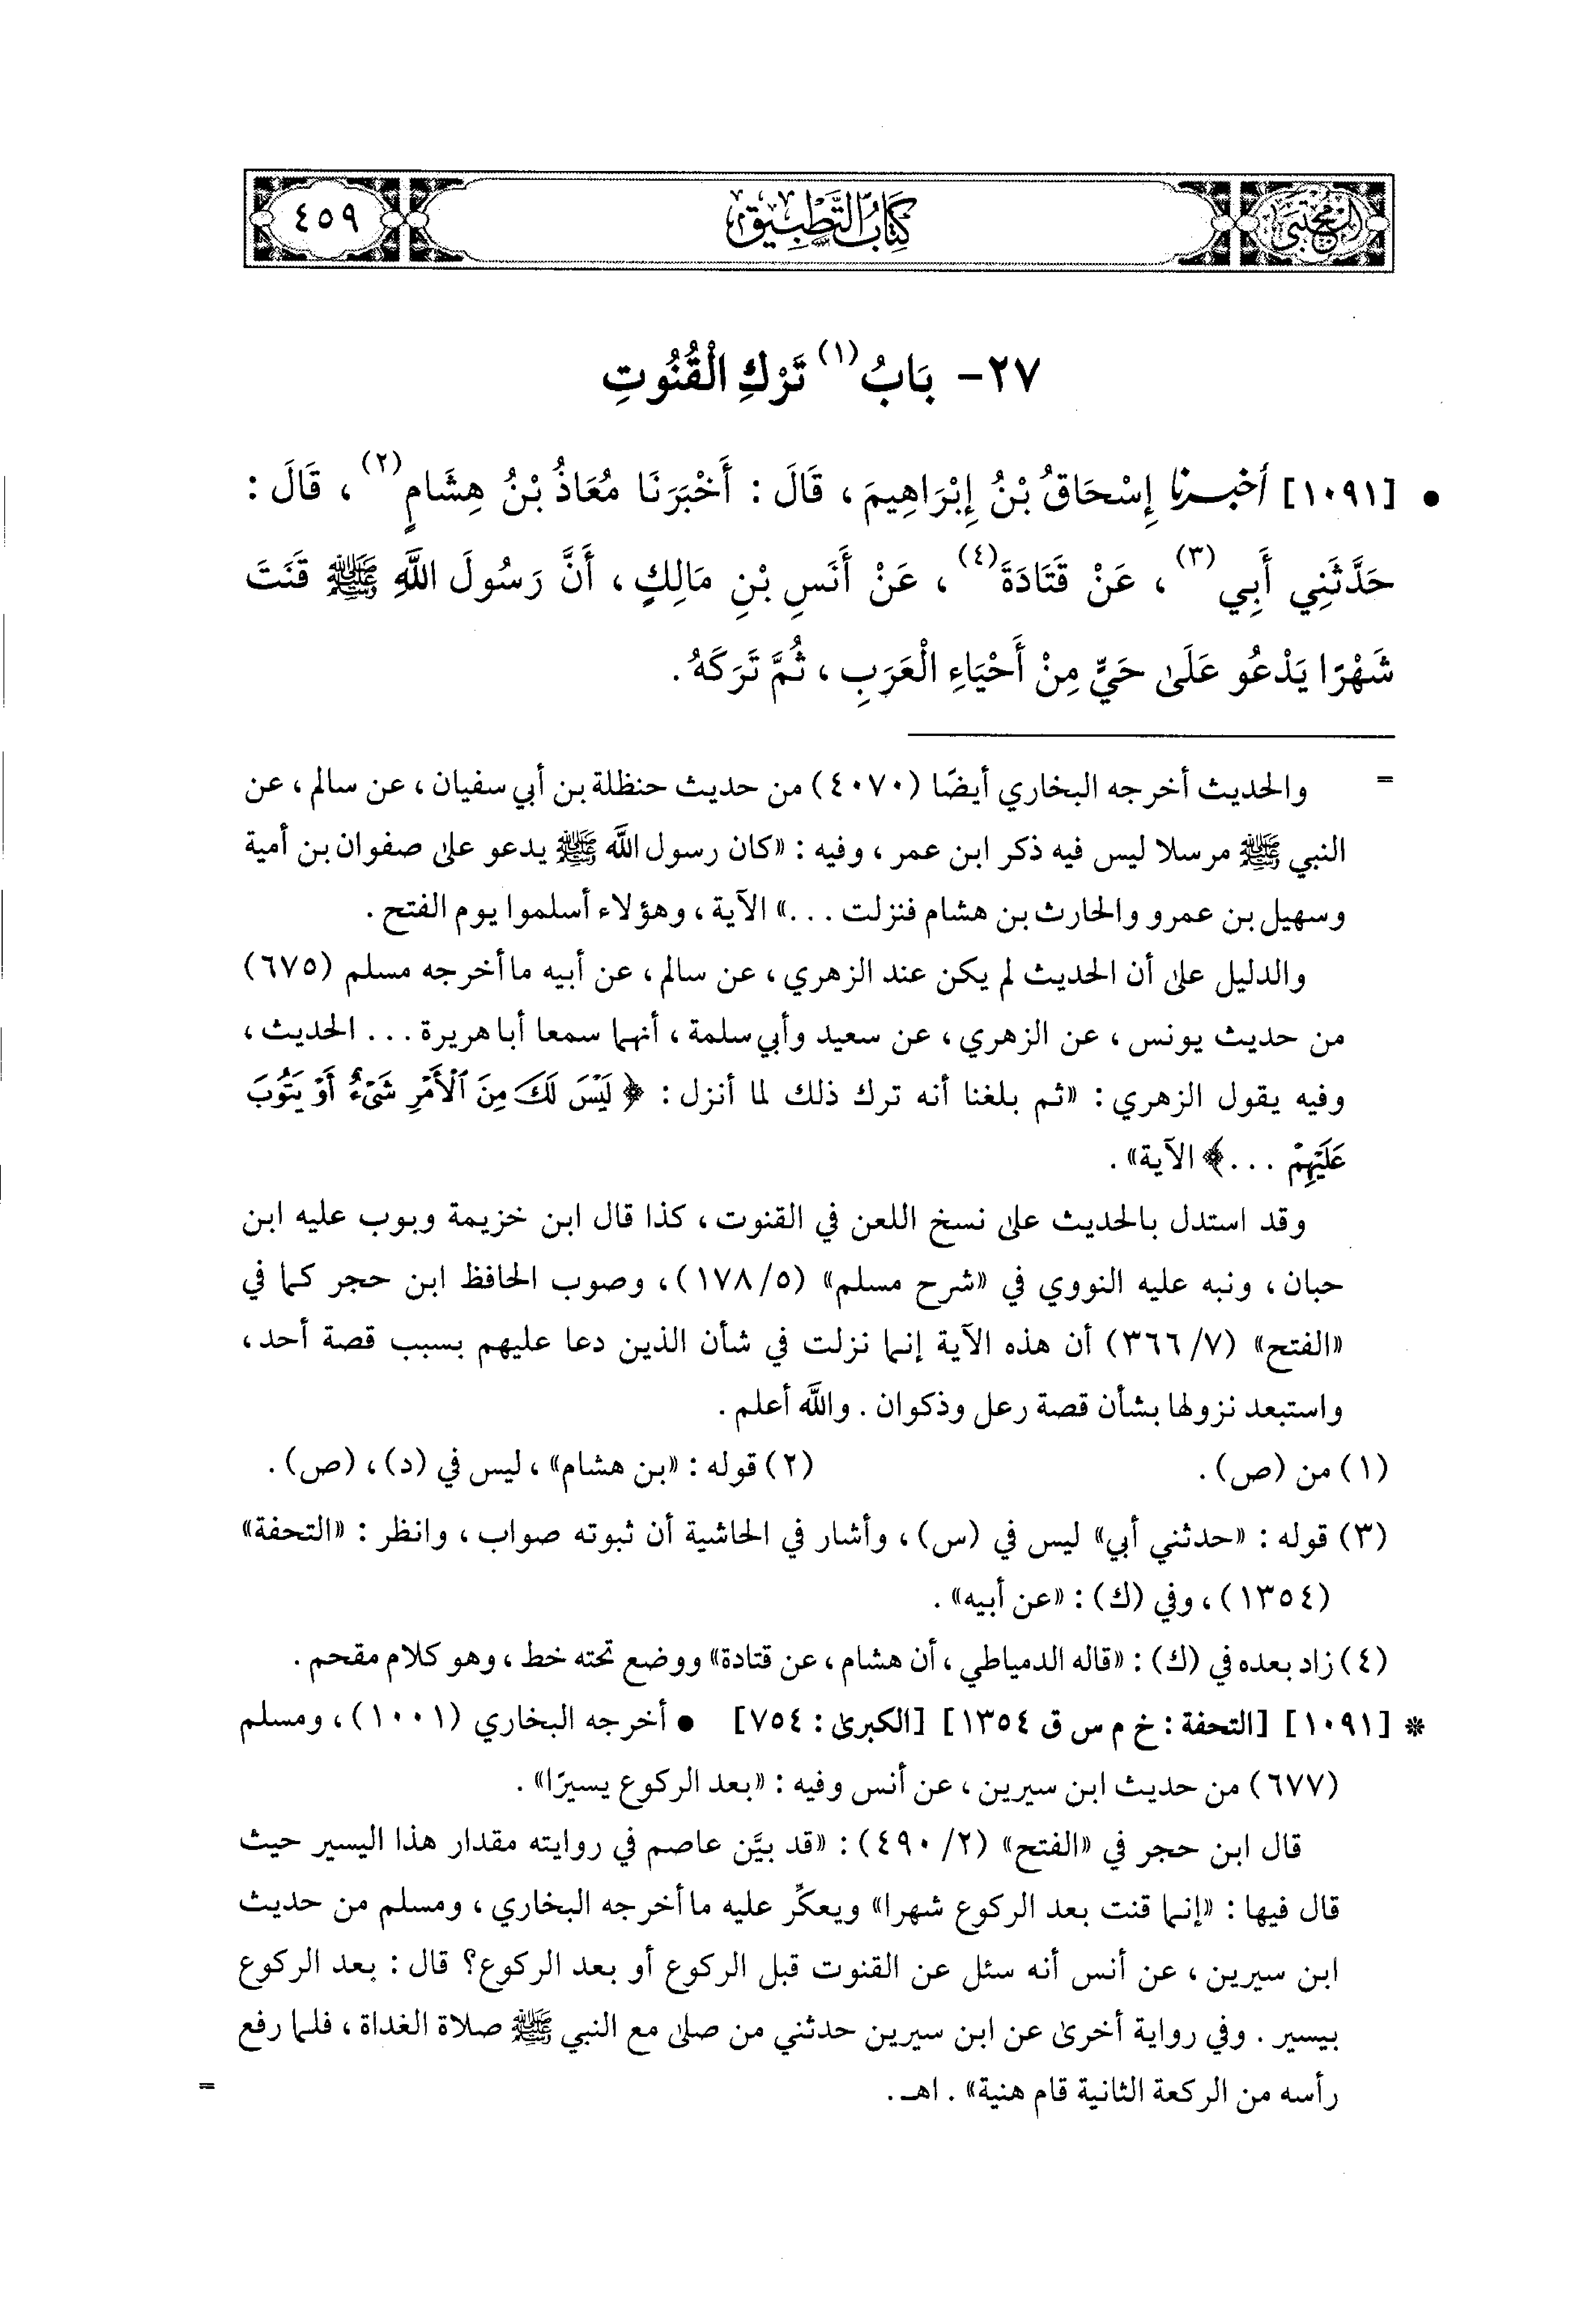 المجتبى
كتاب التطبيق
٤٥٩
٢٧- بَابُ (١) تَرْكِ الْقُنُوتِ
• [١٠٩١] أخبرنا إِسْحَاقُ بْنُ إِبْرَاهِيمَ ، قَالَ : أَخْبَرَنَا مُعَاذُ بْنُ هِشَامٍ (٢) ، قَالَ :
حَدَّثَنِي أَبِي (٣) ، عَنْ قَتَادَةَ (٤) ، عَنْ أَنَسِ بْنِ مَالِكٍ ، أَنَّ رَسُولَ اللَّهِ ﷺ قَنَتَ
شَهْرًا يَدْعُو عَلَى حَيٍّ مِنْ أَحْيَاءِ الْعَرَبِ ، ثُمَّ تَرَكَهُ .
= والحديث أخرجه البخاري أيضًا (٤٠٧٠) من حديث حنظلة بن أبي سفيان ، عن سالم ، عن
النبي ﷺ مرسلا ليس فيه ذكر ابن عمر ، وفيه : «كان رسول اللَّه ﷺ يدعو على صفوان بن أمية
وسهيل بن عمرو والحارث بن هشام فنزلت ...» الآية ، وهؤلاء أسلموا يوم الفتح .
والدليل على أن الحديث لم يكن عند الزهري ، عن سالم ، عن أبيه ما أخرجه مسلم (٦٧٥)
من حديث يونس ، عن الزهري ، عن سعيد وأبي سلمة ، أنهما سمعا أبا هريرة ... الحديث ،
وفيه يقول الزهري : «ثم بلغنا أنه ترك ذلك لما أنزل : ﴿ لَيْسَ لَكَ مِنَ ٱلْأَمْرِ شَىْءٌ أَوْ يَتُوبَ
عَلَيْهِمْ ...﴾ الآية» .
وقد استدل بالحديث على نسخ اللعن في القنوت ، كذا قال ابن خزيمة وبوب عليه ابن
حبان ، ونبه عليه النووي في «شرح مسلم» (٥/ ١٧٨) ، وصوب الحافظ ابن حجر كما في
«الفتح» (٧/ ٣٦٦) أن هذه الآية إنما نزلت في شأن الذين دعا عليهم بسبب قصة أحد ،
واستبعد نزولها بشأن قصة رعل وذكوان . واللَّه أعلم .
(١) من (ص) . (٢) قوله : «بن هشام» ، ليس في (د) ، (ص) .
(٣) قوله : «حدثني أبي» ليس في (س) ، وأشار في الحاشية أن ثبوته صواب ، وانظر : «التحفة»
(١٣٥٤) ، وفي (ك) : «عن أبيه» .
(٤) زاد بعده في (ك) : «قاله الدمياطي ، أن هشام ، عن قتادة» ووضع تحته خط ، وهو كلام مقحم .
* [١٠٩١] [التحفة : خ م س ق ١٣٥٤] [الكبرى : ٧٥٤] • أخرجه البخاري (١٠٠١) ، ومسلم
(٦٧٧) من حديث ابن سيرين ، عن أنس وفيه : «بعد الركوع يسيرًا» .
قال ابن حجر في «الفتح» (٢/ ٤٩٠) : «قد بيَّن عاصم في روايته مقدار هذا اليسير حيث
قال فيها : «إنما قنت بعد الركوع شهرا» ويعكِّر عليه ما أخرجه البخاري ، ومسلم من حديث
ابن سيرين ، عن أنس أنه سئل عن القنوت قبل الركوع أو بعد الركوع؟ قال : بعد الركوع
بيسير . وفي رواية أخرى عن ابن سيرين حدثني من صلى مع النبي ﷺ صلاة الغداة ، فلما رفع
رأسه من الركعة الثانية قام هنية» . اهـ . =